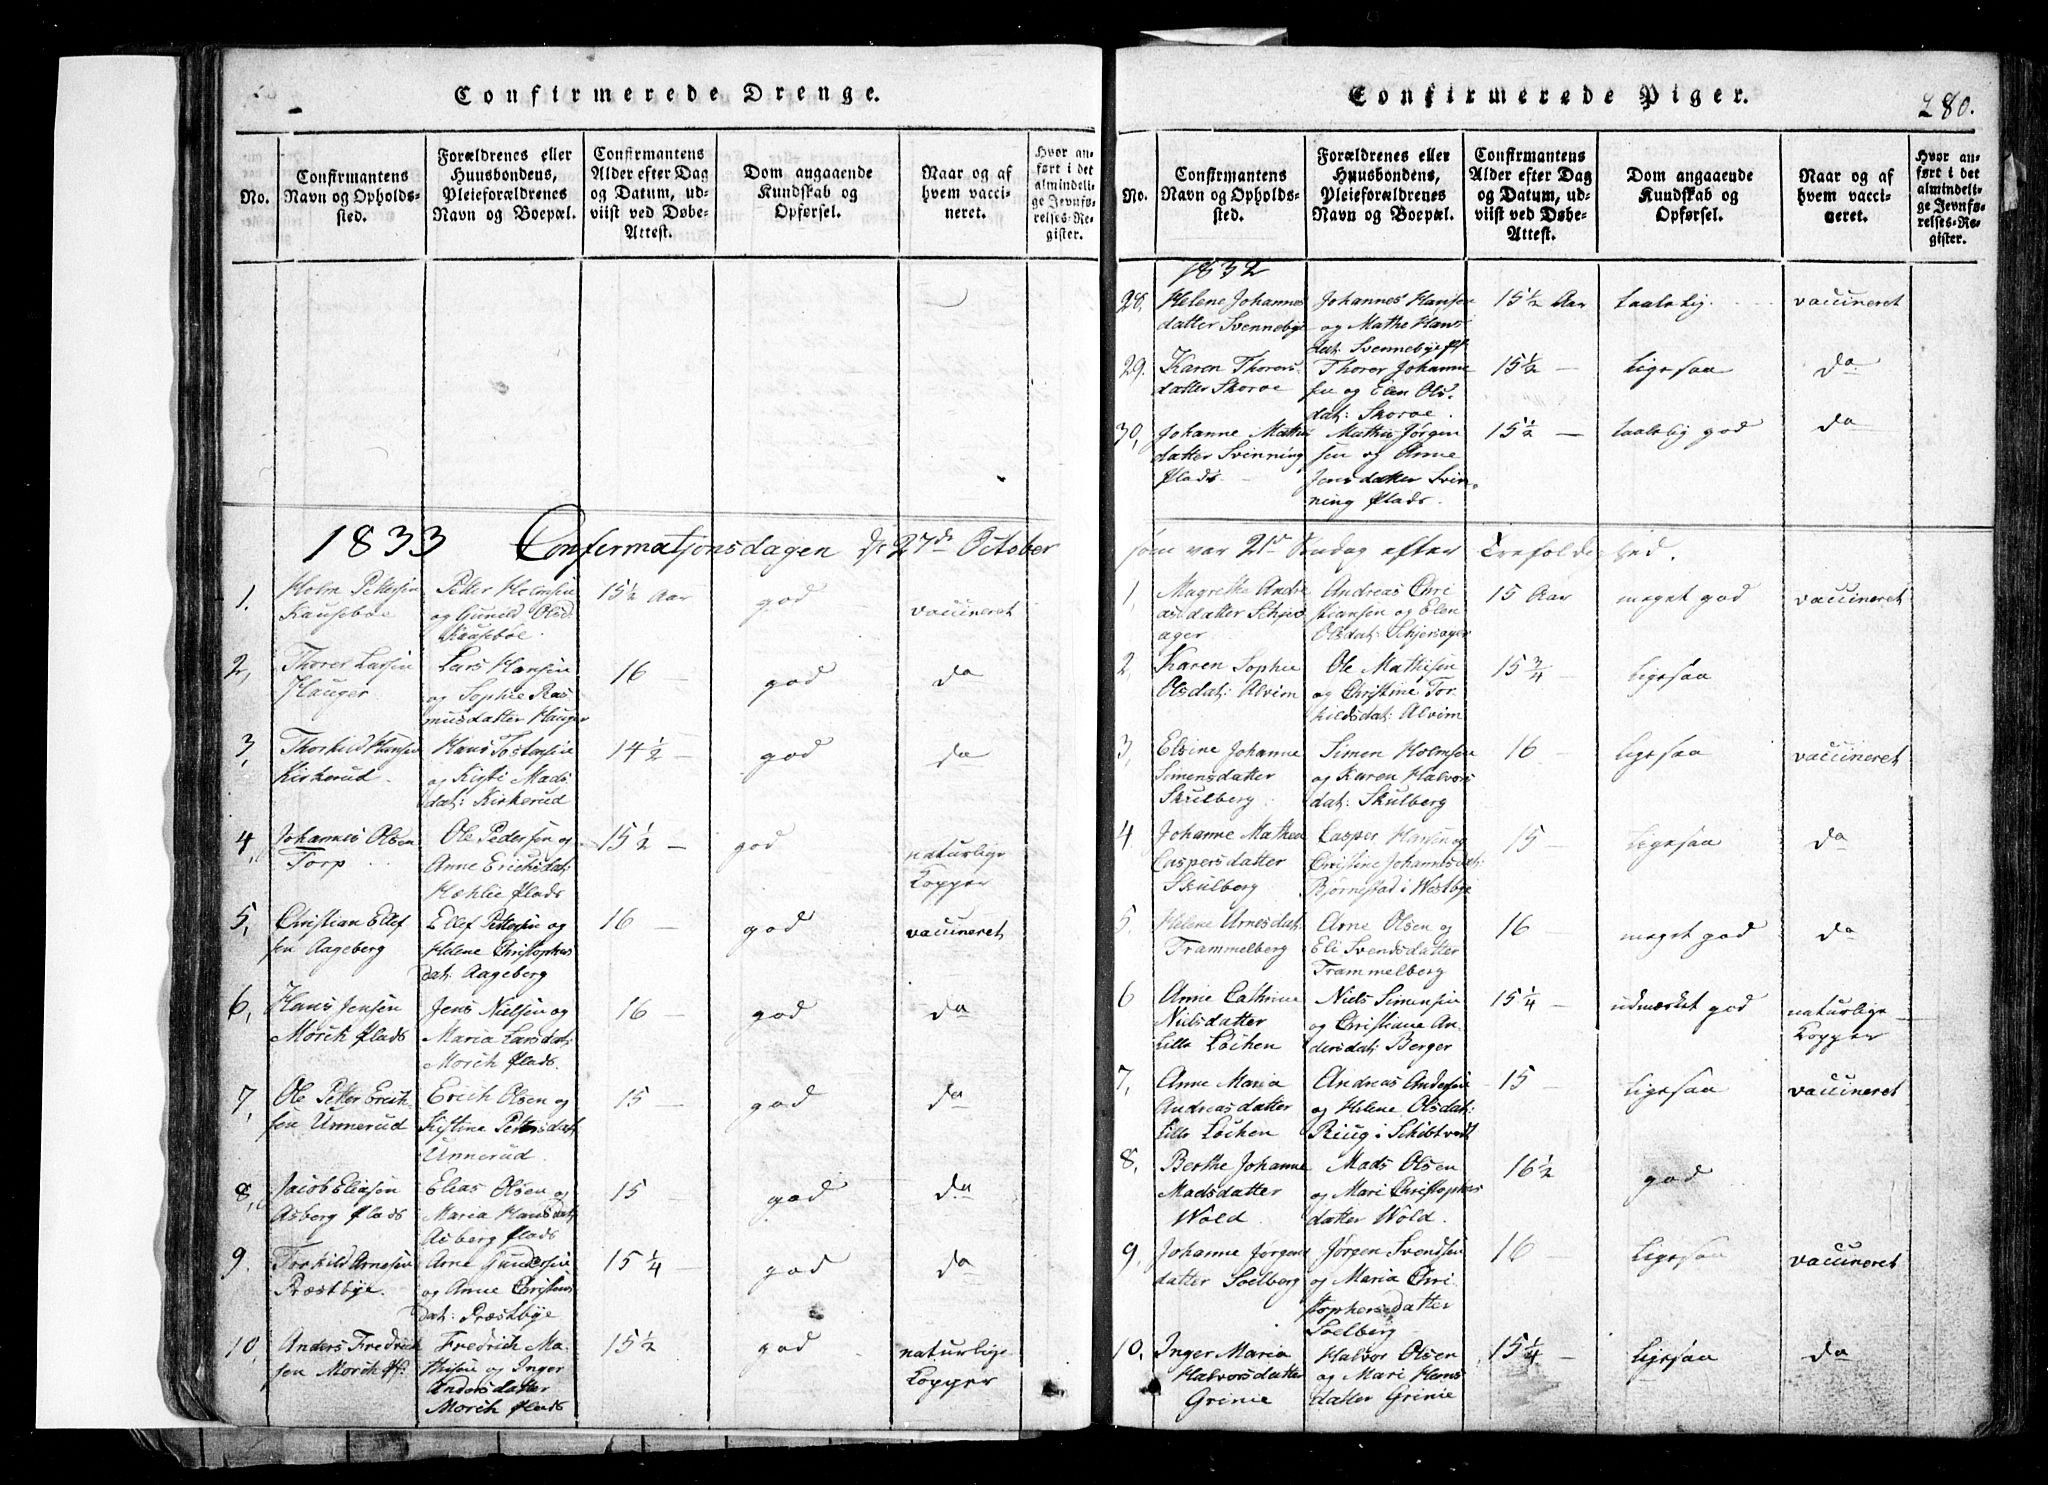 Confirmerede Drenge.
No.
Confirmantens
Navn og Opholds-
sted.
Forældrenes eller
Huusbondens,
Pleieforældrenes
Navn og Boepæl.
Confirmantens
Alder efter Dag
og Datum, ud-
viist ved Døbe-
Attest.
Dom angaaende
Kundskab og
Opførsel.
Naar og af
hvem vacci-
neret.
Hvor an-
ført i det
almindeli-
ge Jevnfø-
relses-Re-
gister.
1833 Confirmationsdagen d. 27de October
1.
Holm Pettersen
Kausebøe
Petter Holmsen
og Gunild Olsd.
Kausebøe.
15½ Aar
god
vaccineret
2,
Thorer Larsen
Hauger
Lars Hansen
og Sophie Ras
musdatter Hauger
16 —
god
do
3,
Thorkild Hansen
Kirkerud
Hans Tostensen
og Kisti Mads
dat: Kirkerud
14½ —
god
do
4,
Johannes Olsen
Torp
Ole Pedersen og
Anne Erichsdat:
Hæhlie Plads
15½ —
god
naturlige
Kopper
5,
Christian Ellef
sen Aageberg
Ellef Pettersen og
Helene Christophers
dat: Aageberg
16 —
god
vaccineret
6,
Hans Jensen
Morch Plads
Jens Nielsen og
Maria Larsdat:
Morch Plads.
16 —
god
do
7,
Ole Petter Erich-
sen Unnerud
Erich Olsen og
Kistine Pettersdat:
Unnerud.
15 —
god
do
8,
Jacob Eliasen
Asberg Plads
Elias Olsen og
Maria Hansdat:
Asberg Plads
15 —
god
do
9.
Torkild Arnesen
Præstbye.
Arne Gundersen
og Anne Christens
dat: Præstbye
15¼ —
god
do
10,
Anders Fredrich
sen Morch Pl:
Fredrich Ma-
thisen og Inger
Andersdatter
Morch Plads
15½
god
naturlige
Kopper
Confirmerede Piger.
280.
No.
Confirmantens
Navn og Opholds-
sted.
Forældrenes eller
Huusbondens,
Pleieforældrenes
Navn og Boepæl.
Confirmantens
Alder efter Dag
og Datum, ud-
viist ved Døbe-
Attest.
Dom angaaende
Kundskab og
Opførsel.
Naar og af
hvem vacci-
neret.
Hvor an-
ført i det
almindeli-
ge Jevnfø-
relses-Re-
gister.
1832
28.
Helene Johannes
datter Svennebye
Johannes Hansen
og Mathe Hans
dat: Svennebye
15½ Aar
taalelig.
vaccineret
29.
Karen Thorers
datter Skoroe
Thorer Johanne
sen og Elen Ols
dat: Skoroe.
15½ —
ligesaa
do
30,
Johanne Mathis
datter Svinning
Plads.
Mathis Jørgen
sen og Anne
Jensdatter Svin-
ning Plads.
15½ —
taalelig god
do
som var 21de Søndag efter Trefoldighed.
1,
Magrethe Andre
asdatter Schjers
ager
Andreas Chri
stiansen og Elen
Olsdat: Schjersager
15 Aar
meget god
vaccineret
2,
Karen Sophie
Olsdat: Alvim
Ole Mathisen
og Christine Tor-
kildsdat: Alvim
15¾ —
ligesaa
3,
Elsine Johanne
Simensdatter
Skulberg
Simen Holmsen
og Karen Halvors
dat: Skulberg
16 —
ligesaa
vaccineret
4,
Johanne Mathea
Caspersdatter
Skulberg
Casper Hansen og
Christine Johannesdat:
Bjørnestad i Westbye
15 —
ligesaa
do
5,
Helene Arnesdat:
Trammelberg
Arne Olsen og
Eli Svendsdatter
Trammelberg
16 —
meget god
do
6
Anne Cathrine
Nielsdatter
Lille Løchen
Niels Simensen
og Christiane An-
dersdat: Berger
15¼ —
udmærket god
naturlige
Kopper
7,
Anne Maria
Andreasdatter
Lille Løchen
Andreas Andersen
og Helene Olsdat:
Riug i Schibtvedt
15 —
ligesaa
vaccineret
8,
Berthe Johanne
Madsdatter
Wold.
Mads Olsen
og Mari Christophers
datter Wold.
16½
god
9,
Johanne Jørgens
datter Soelberg
Jørgen Svendsen
og Maria Chri
stophersdatter
Soelberg
16 —
ligesaa
vaccineret
10,
Inger Maria
Halvorsdatter
Grinie
Halvor Olsen
og Mari Hans
datter Grinie
15¼ —
ligesaa
do